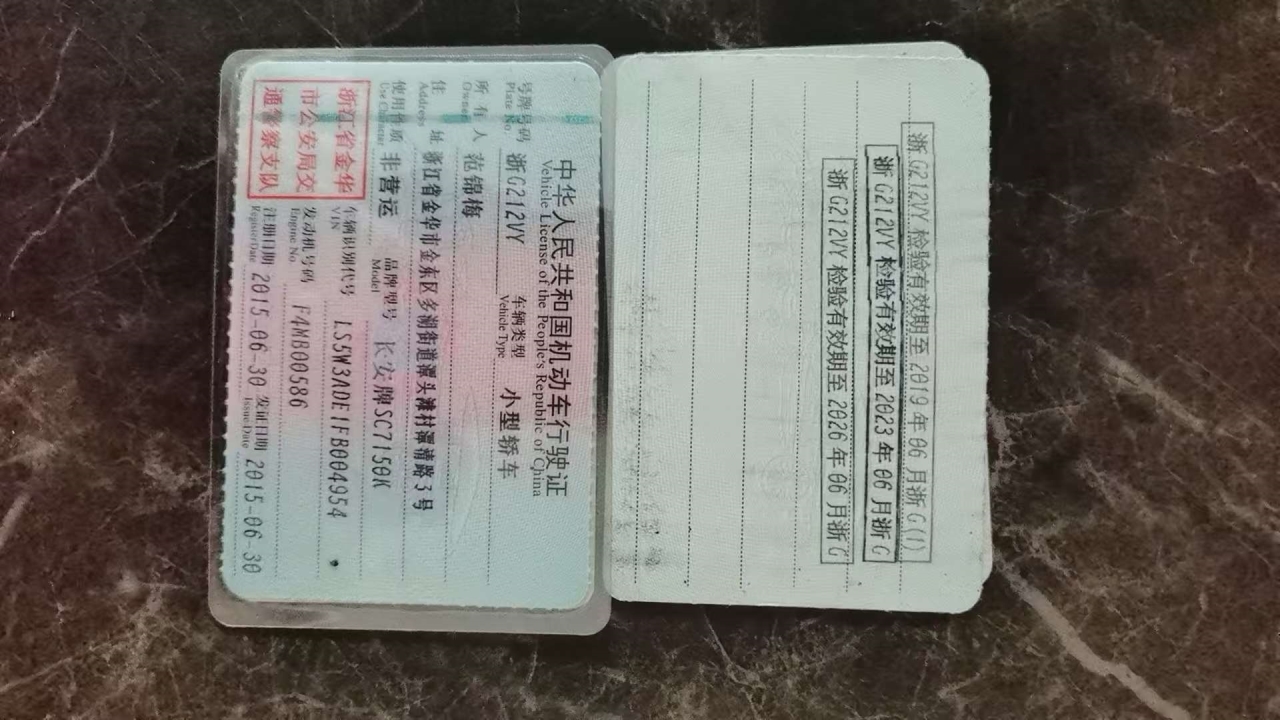 中华人民共和国机动车行驶证
Vehicle License of the People's Republic of China
号牌号码 浙G212VY 车辆类型 小型轿车
Plate No. Vehicle Type
所有人 范锦梅
Owner
住址 浙江省金华市金东区多湖街道潭头滩村潭清路3号
Address
使用性质 非营运 品牌型号 长安牌SC7150K
Use Character Model
浙江省金华
市公安局交
通警察支队
车辆识别代号 LS5W3ADE1FB004954
VIN
发动机号码 F4MB00586
Engine No.
注册日期 2015-06-30 发证日期 2015-06-30
Register Date Issue Date
浙G212VY 检验有效期至 2019年06月浙G(1)
浙G212VY 检验有效期至 2023年06月浙G
浙G212VY 检验有效期至 2026年06月浙G